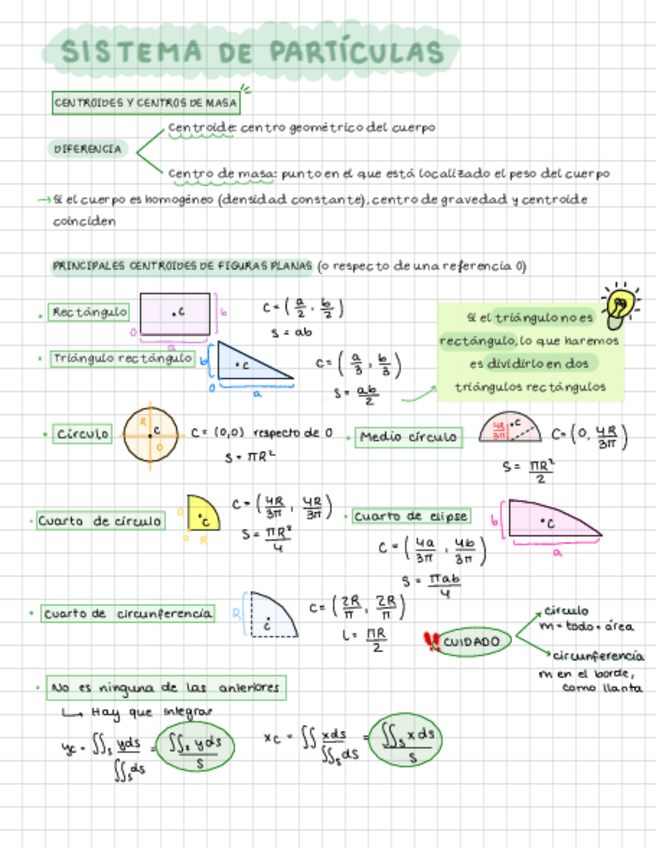 SISTEMA DE PARTÍCULAS
CENTROIDES Y CENTROS DE MASA
DIFERENCIA
Centroide: centro geométrico del cuerpo
Centro de masa: punto en el que está localizado el peso del cuerpo
→ Si el cuerpo es homogéneo (densidad constante), centro de gravedad y centroide
coinciden
PRINCIPALES CENTROIDES DE FIGURAS PLANAS (o respecto de una referencia 0)
· Rectángulo
0 a b · c
C = (a/2, b/2)
S = ab
· Triángulo rectángulo
b 0 a · c
C = (a/3, b/3)
S = ab/2
Si el triángulo no es
rectángulo, lo que haremos
es dividirlo en dos
triángulos rectángulos
· Círculo
R c 0
C = (0,0) respecto de 0
S = πR²
· Medio círculo
4R/3π · c
C = (0, 4R/3π)
S = πR²/2
· Cuarto de círculo
R · c 0 R
C = (4R/3π, 4R/3π)
S = πR²/4
· Cuarto de elipse
b · c a
C = (4a/3π, 4b/3π)
S = πab/4
· Cuarto de circunferencia
R c
C = (2R/π, 2R/π)
L = πR/2
!! CUIDADO
círculo
m = todo = área
circunferencia
m en el borde,
como llanta
· No es ninguna de las anteriores
↳ Hay que integrar
yc = ∬s yds / ∬s ds = ∬s y ds / S
xc = ∬ xds / ∬s ds = ∬s x ds / S